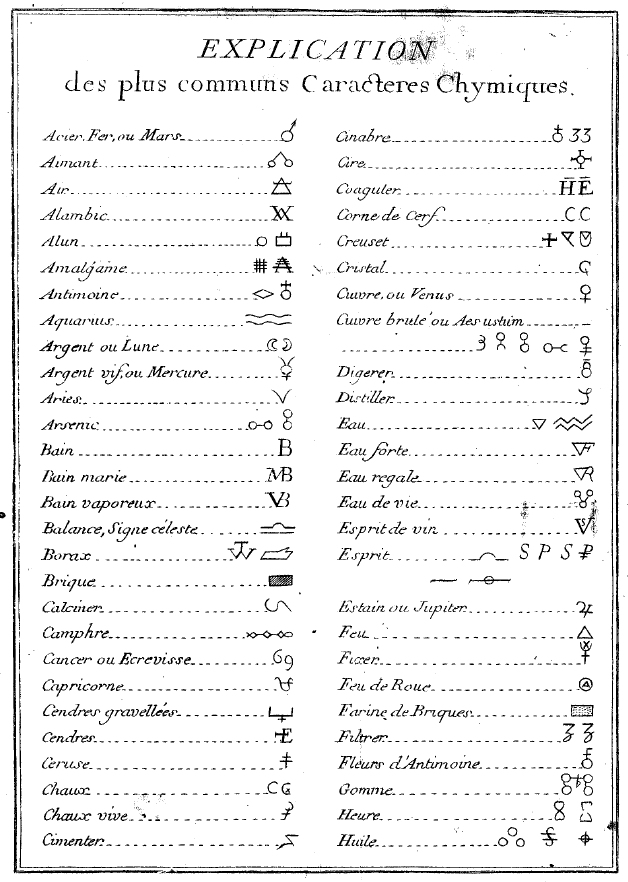 EXPLICATION
des plus communs Caracteres Chymiques.
Acier, Fer, ou Mars
Aimant
Air
Alambic
Alun
Amalgame
Antimoine
Aquarius
Argent ou Lune
Argent vif, ou Mercure
Aries
Arsenic
Bain B
Bain marie MB
Bain vaporeux VB
Balance, Signe céleste
Borax
Brique
Calciner
Camphre
Cancer ou Ecrevisse
Capricorne
Cendres gravellées
Cendres
Ceruse
Chaux
Chaux vive
Cimenter
Cinabre
Cire
Coaguler
Corne de Cerf CC
Creuset
Cristal
Cuivre, ou Venus
Cuivre brulé ou Aes ustum
Digerer
Distiller
Eau
Eau forte
Eau regale
Eau de vie
Esprit de vin
Esprit S P S P
Estain ou Jupiter
Feu
Fixer
Feu de Roue
Farine de Briques
Filtrer
Fleurs d'Antimoine
Gomme
Heure
Huile